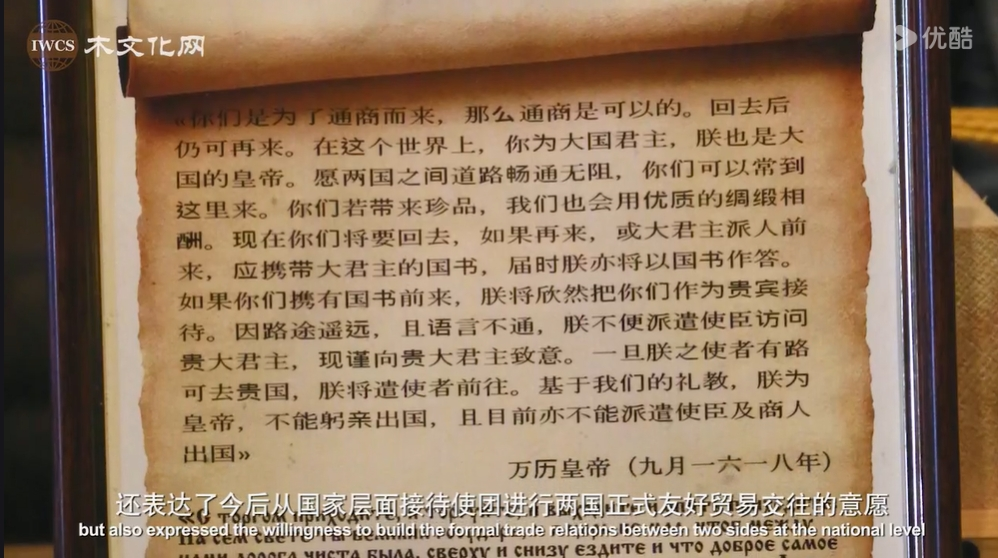 IWCS 木文化网
优酷
«你们是为了通商而来，那么通商是可以的。回去后
仍可再来。在这个世界上，你为大国君主，朕也是大
国的皇帝。愿两国之间道路畅通无阻，你们可以常到
这里来。你们若带来珍品，我们也会用优质的绸缎相
酬。现在你们将要回去，如果再来，或大君主派人前
来，应携带大君主的国书，届时朕亦将以国书作答。
如果你们携有国书前来，朕将欣然把你们作为贵宾接
待。因路途遥远，且语言不通，朕不便派遣使臣访问
贵大君主，现谨向贵大君主致意。一旦朕之使者有路
可去贵国，朕将遣使者前往。基于我们的礼教，朕为
皇帝，不能躬亲出国，且目前亦不能派遣使臣及商人
出国»
万历皇帝（九月一六一八年）
还表达了今后从国家层面接待使团进行两国正式友好贸易交往的意愿
but also expressed the willingness to build the formal trade relations between two sides at the national level
дорога чиста была, сверху и снизу ездите и что доброе самое